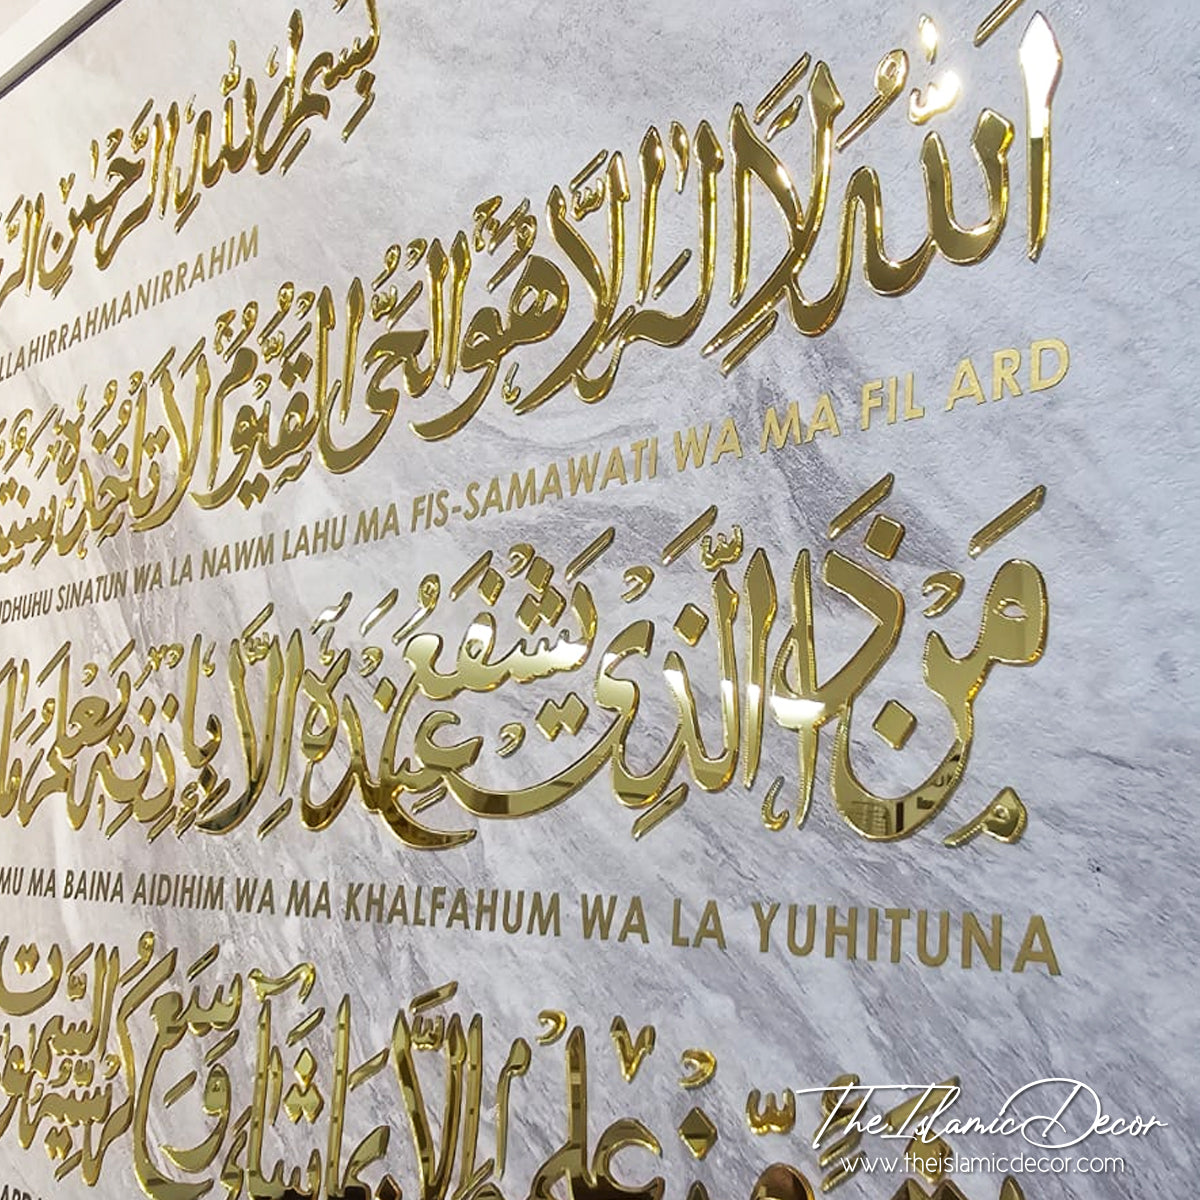 بِسْمِ اللهِ الرَّحْمٰنِ
LLAHIRRAHMANIRRAHIM
اَللهُ لَا اِلٰهَ اِلَّا هُوَ الْحَيُّ الْقَيُّومُ لَا تَأْخُذُهُ
UDHUHU SINATUN WA LA NAWM LAHU MA FIS-SAMAWATI WA MA FIL ARD
مَنْ ذَا الَّذِي يَشْفَعُ عِنْدَهُ اِلَّا بِاِذْنِهِ يَعْلَمُ مَا
MU MA BAINA AIDIHIM WA MA KHALFAHUM WA LA YUHITUNA
عِلْمِهِ اِلَّا بِمَا شَآءَ وَسِعَ كُرْسِيُّهُ السَّمٰوَاتِ
The Islamic Decor
www.theislamicdecor.com